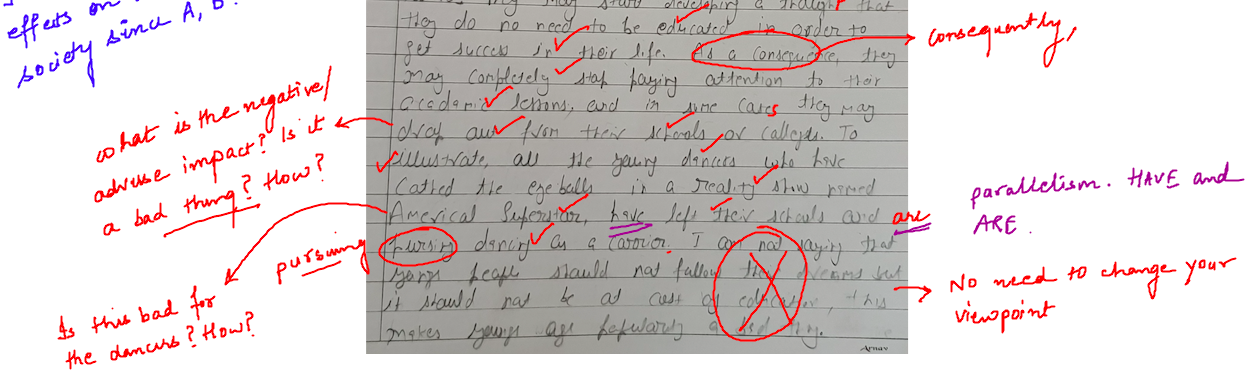 effects on
society since A, B.
they may start developing a thought that
they do no need to be educated in order to
get success in their life. As a consequence, they
consequently,
may completely stop paying attention to their
academic lessons, and in some cases they may
drop out from their schools or colleges. To
illustrate, all the young dancers who have
cathed the eyeballs in a reality show named
Americal Superstar, have left their schools and are
pursing dancing as a carrior. I am not saying that
young people should not follow their dreams but
it should not be at cost of education, this
makes young age popularity a bad thing.
Arnav
what is the negative/
adverse impact? Is it
a bad thing? How?
pursuing
Is this bad for
the dancers? How?
parallelism. HAVE and
ARE.
No need to change your
viewpoint